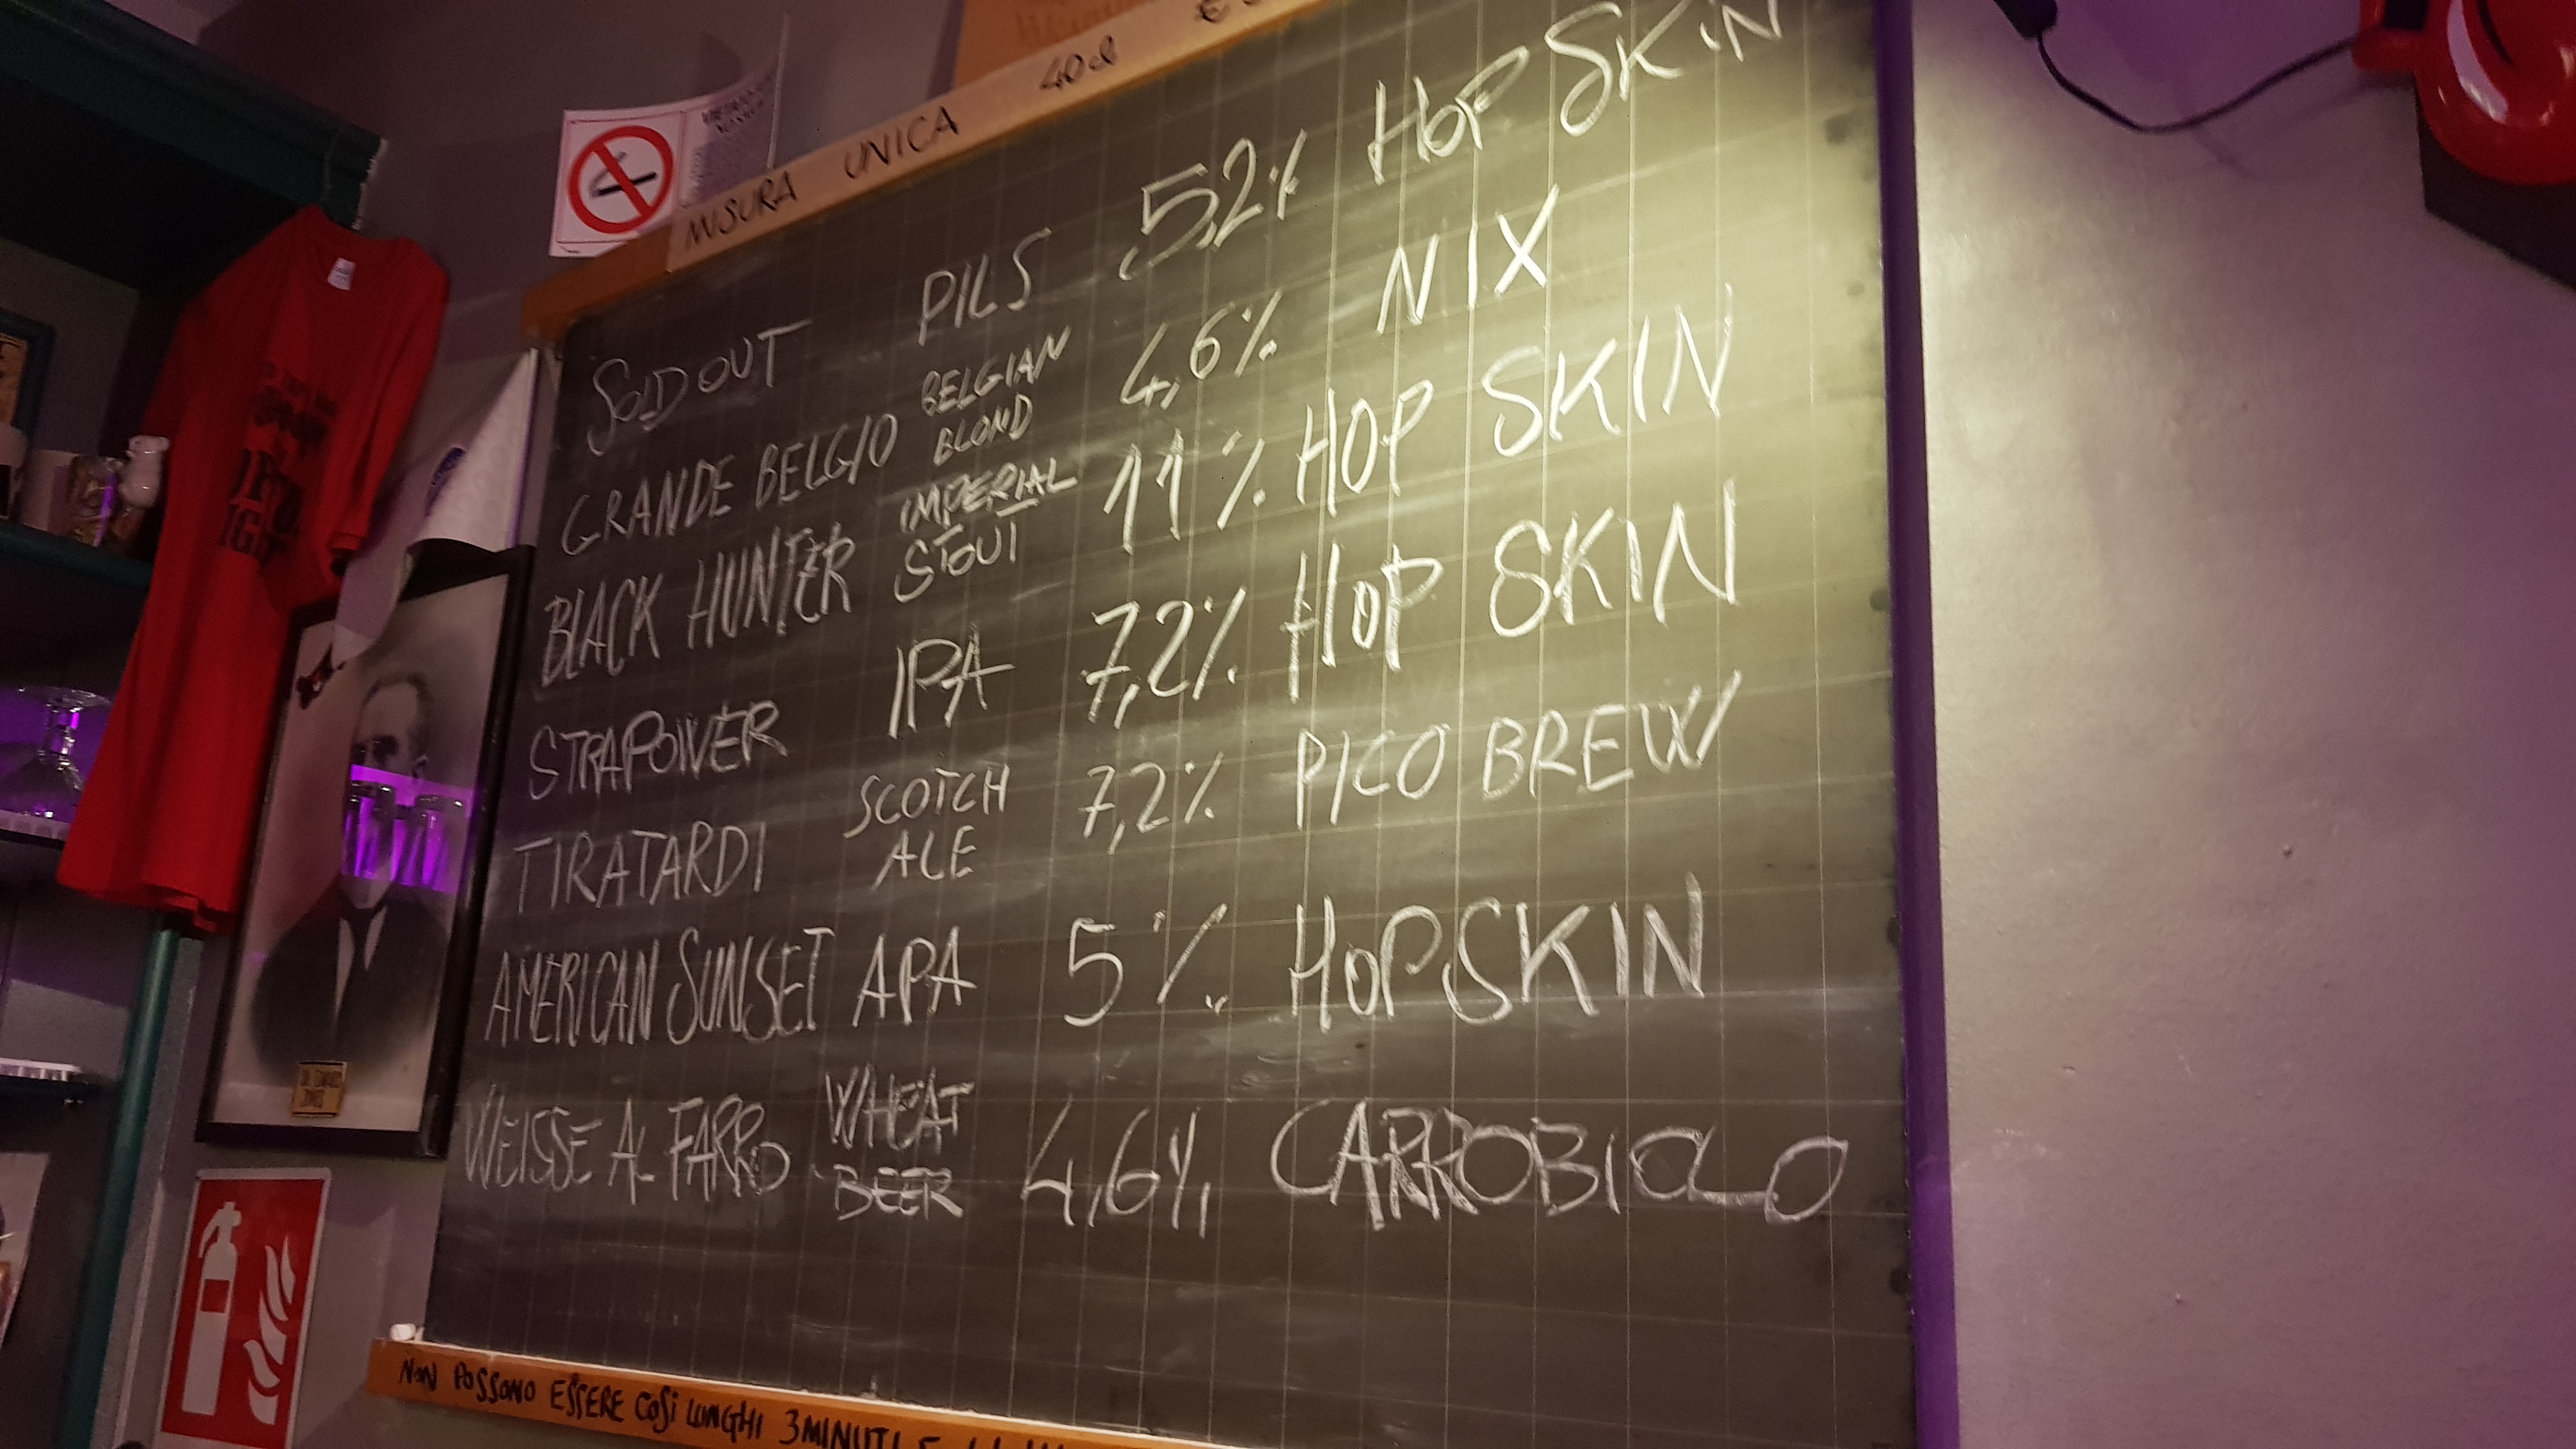 MISURA UNICA 40cl €
SOLD OUT PILS 5,2% HOP SKIN
GRANDE BELGIO BELGIAN BLOND 4,6% NIX
BLACK HUNTER IMPERIAL STOUT 11% HOP SKIN
STRAPOWER IPA 7,2% HOP SKIN
TIRATARDI SCOTCH ALE 7,2% PICO BREW
AMERICAN SUNSET APA 5% HOP SKIN
WEISSE AL FARRO WHEAT BEER 4,6% CARROBIOLO
NON POSSONO ESSERE COSÌ LUNGHI 3 MINUTI